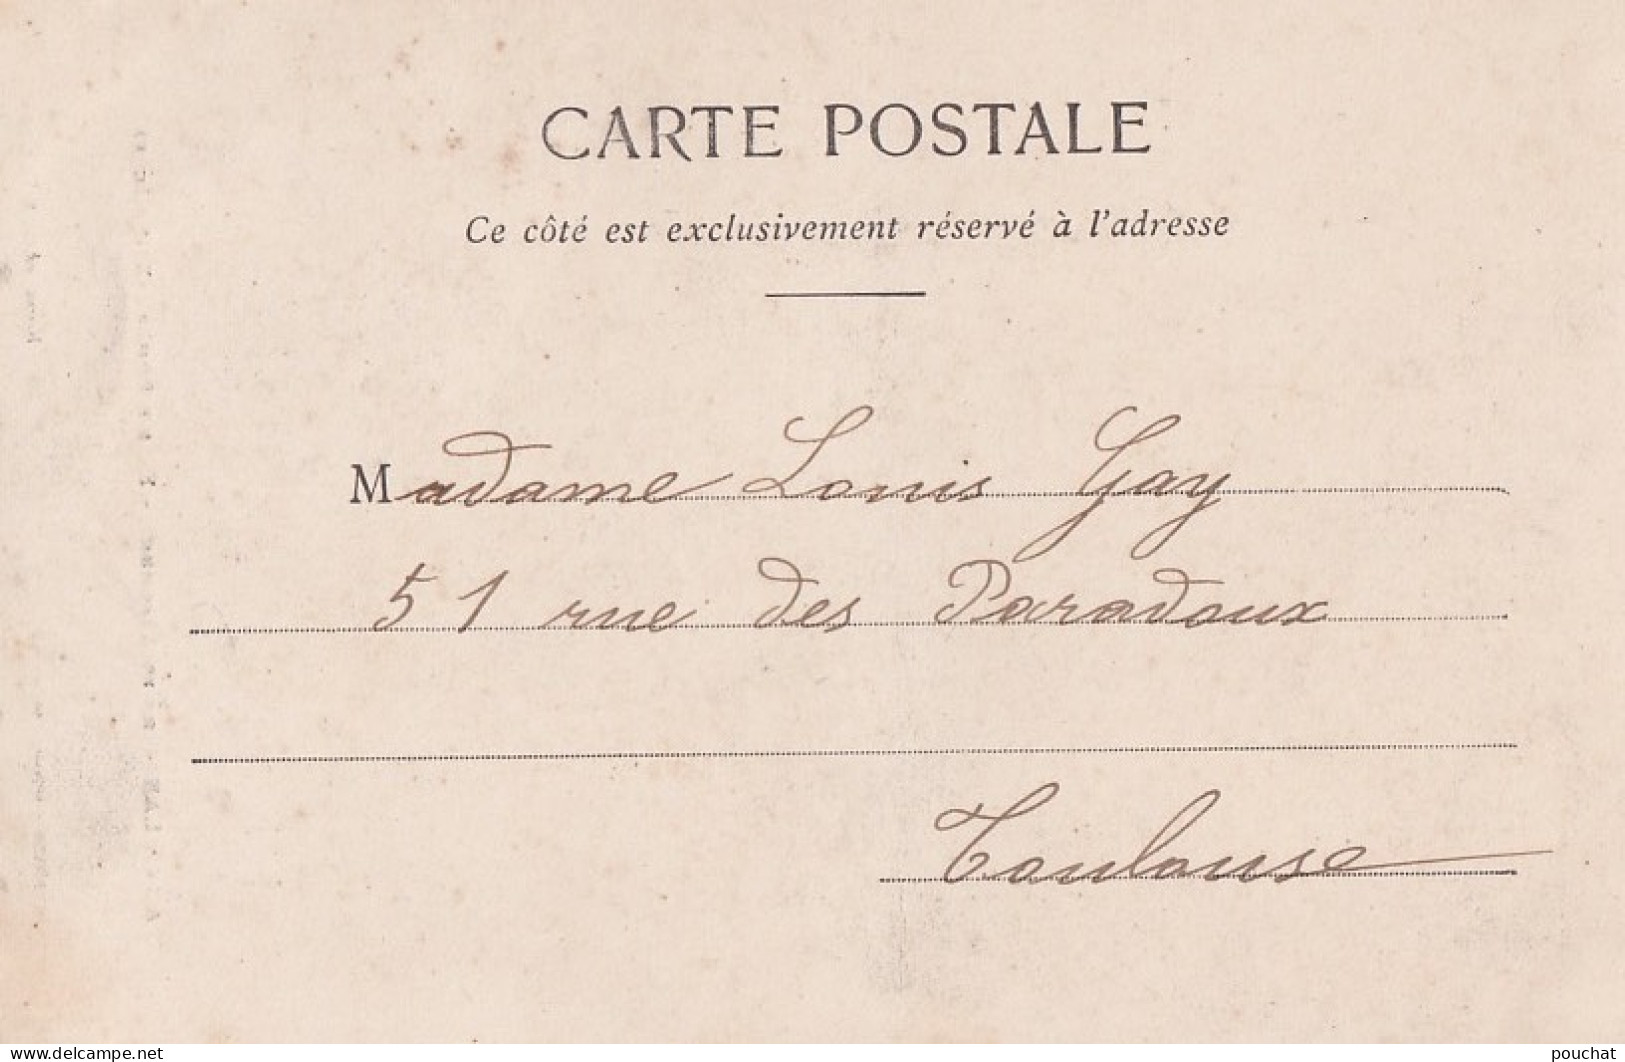 CARTE POSTALE
Ce côté est exclusivement réservé à l'adresse
Madame Louis Gay
51 rue des Paradoux
Toulouse
www.delcampe.net
pouchat